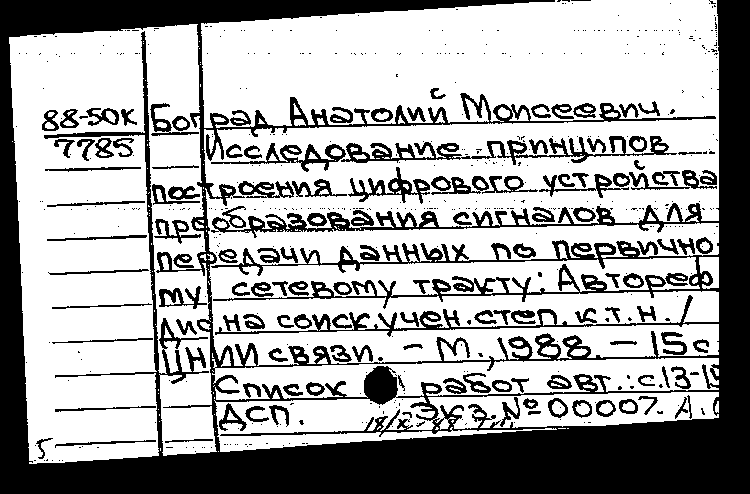 88-50к Боград, Анатолий Моисеевич.
7785 Исследование принципов
построения цифрового устройства
преобразования сигналов для
передачи данных по первично-
му сетевому тракту: Автореф
дис. на соиск. учен. степ. к.т.н. /
ЦНИИ связи. – М., 1988. – 15с
Список работ авт.: с.13-15
ДСП. Экз. № 00007. А.
18/X-88
5